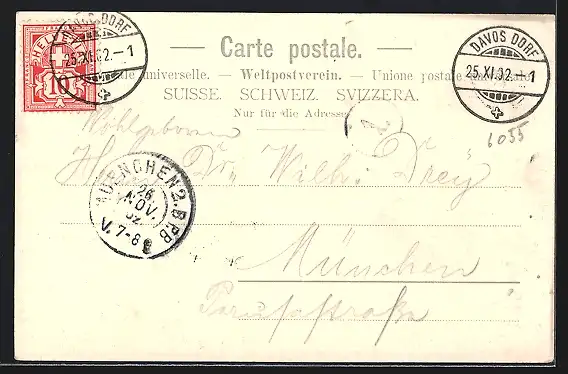 DAVOS DORF
25.XI.02.-1
HELVETIA
10
DAVOS DORF
25.XI.02.-1
— Carte postale. —
universelle. — Weltpostverein. — Unione postale
SUISSE. SCHWEIZ. SVIZZERA.
Nur für die Adresse.
6055
Wohlgeboren
H Dr. Wilh. Drey
MUENCHEN 2. B.P.B
26
NOV.
02
V. 7-8
München